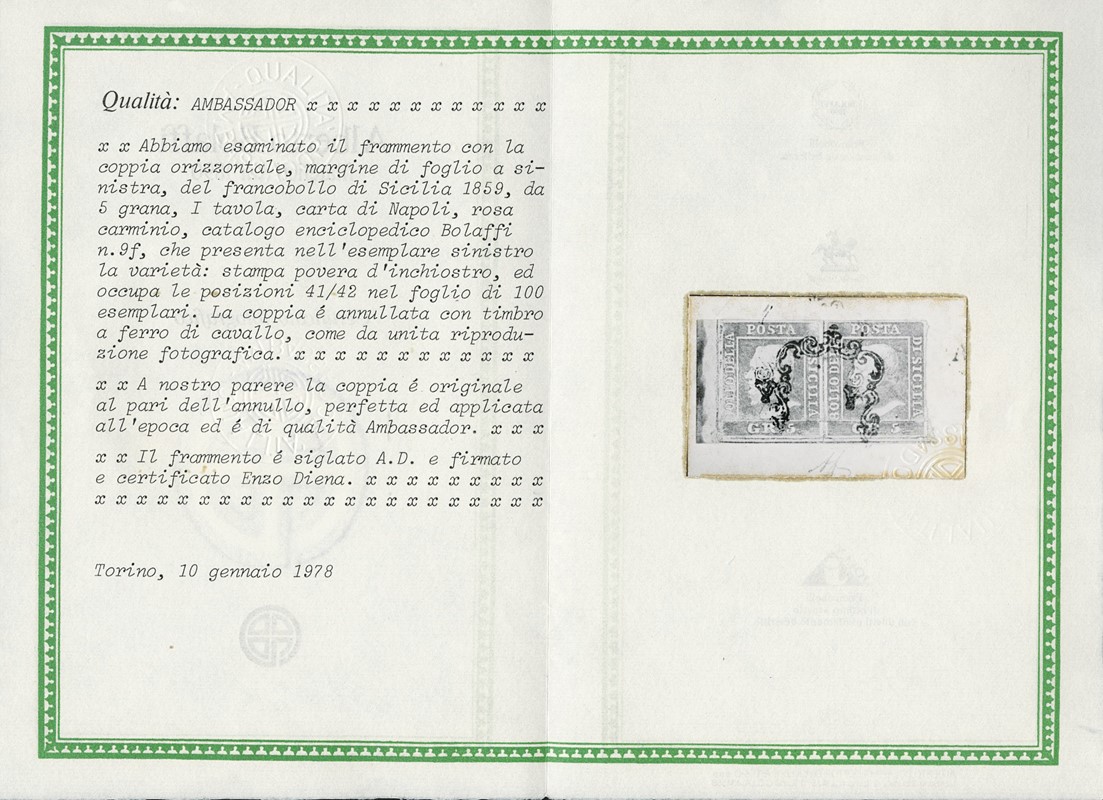 Qualità: AMBASSADOR x x x x x x x x x x x x
x x Abbiamo esaminato il frammento con la
coppia orizzontale, margine di foglio a si-
nistra, del francobollo di Sicilia 1859, da
5 grana, I tavola, carta di Napoli, rosa
carminio, catalogo enciclopedico Bolaffi
n.9f, che presenta nell'esemplare sinistro
la varietà: stampa povera d'inchiostro, ed
occupa le posizioni 41/42 nel foglio di 100
esemplari. La coppia é annullata con timbro
a ferro di cavallo, come da unita riprodu-
zione fotografica. x x x x x x x x x x x x
x x A nostro parere la coppia é originale
al pari dell'annullo, perfetta ed applicata
all'epoca ed é di qualità Ambassador. x x x
x x Il frammento é siglato A.D. e firmato
e certificato Enzo Diena. x x x x x x x x x
x x x x x x x x x x x x x x x x x x x x x x
Torino, 10 gennaio 1978
POSTA POSTA
DI SICILIA
GR. 5